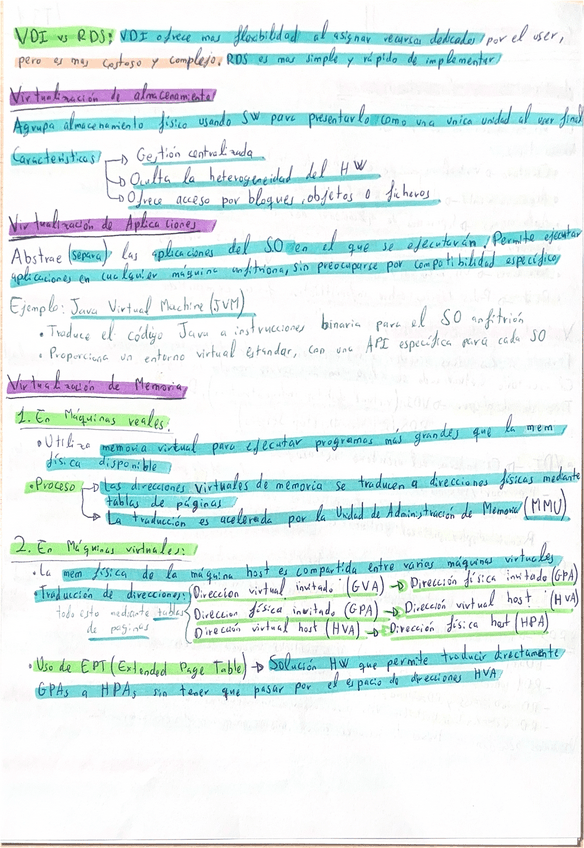 VDI vs RDS: VDI ofrece mas flexibilidad al asignar recursos dedicados por el user,
pero es mas costoso y complejo. RDS es mas simple y rápido de implementar
Virtualización de almacenamiento
Agrupa almacenamiento físico usando SW para presentarlo como una unica unidad al user final
Características → Gestión centralizada
→ Oculta la heterogeneidad del HW
→ Ofrece acceso por bloques, objetos o ficheros
Virtualización de Aplicaciones
Abstrae (separa) las aplicaciones del SO en el que se ejecutarán. Permite ejecutar
aplicaciones en cualquier maquina anfitriona, sin preocuparse por compatibilidad específica
Ejemplo: Java Virtual Machine (JVM)
• Traduce el código Java a instrucciones binaria para el SO anfitrión
• Proporciona un entorno virtual estandar, con una API específica para cada SO
Virtualización de Memoria
1. En Máquinas reales:
• Utiliza memoria virtual para ejecutar programas mas grandes que la mem
física disponible
• Proceso → Las direcciones Virtuales de memoria se traducen a direcciones físicas mediante
tablas de páginas
→ La traducción es acelerada por la Unidad de Administración de Memoria (MMU)
2. En Máquinas virtuales:
• La mem física de la máquina host es compartida entre varias máquinas virtuales
• Traducción de direcciones: Direccion virtual invitado (GVA) → Dirección física invitado (GPA)
todo esto mediante tablas Direccion física invitado (GPA) → Dirección virtual host (HVA)
de páginas Dirección virtual host (HVA) → Dirección física host (HPA)
• Uso de EPT (Extended Page Table) → Solución HW que permite traducir directamente
GPAs a HPAs sin tener que pasar por el espacio de direcciones HVA